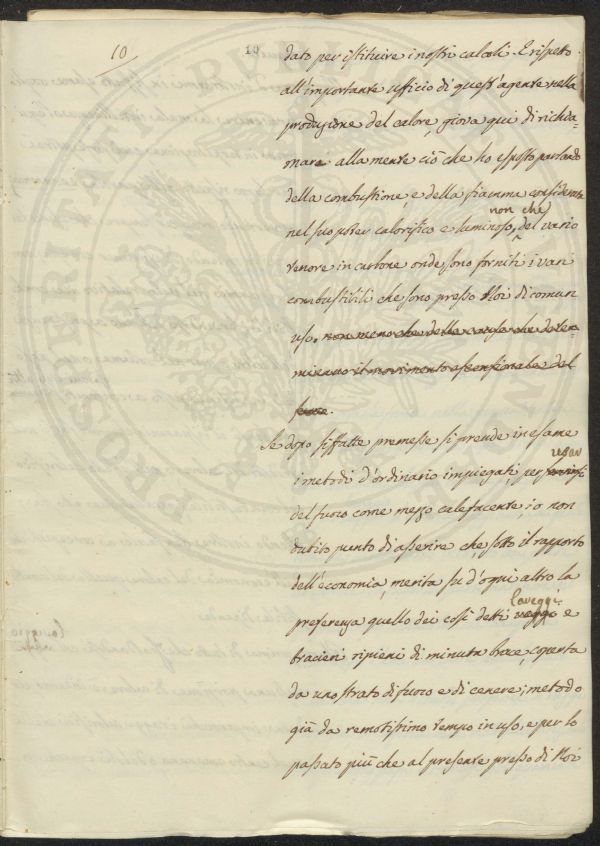 10 10
dato per istituire i nostri calcoli. E rispetto
all'importante ufficio di quest'agente nella
produzione del calore, giova qui di richia=
mare alla mente ciò che ho esposto parlando
della combustione, e della fiamma considerata
non che
nel suo poter calorifico e luminoso, del vario
tenore in carbone onde sono forniti i vari
combustibili che sono presso Noi di comun
uso, non meno che delle cause che deter=
minano il movimento ascensionale del
fumo.
Se dopo siffatte premesse si prende in esame
usar
i metodi d'ordinario impiegati, per servirsi
del fuoco come mezzo calefacente, io non
dubito punto di asserire che sotto il rapporto
dell'economia, merita su d'ogni altro la
laveggi
preferenza quello dei così detti veggi e
bracieri ripieni di minuta brace, coperta
da uno strato di fuoco e di cenere; metodo
già da remotissimo tempo in uso, e per lo
passato più che al presente presso di Noi
PROSPERITATI PUBLICAE